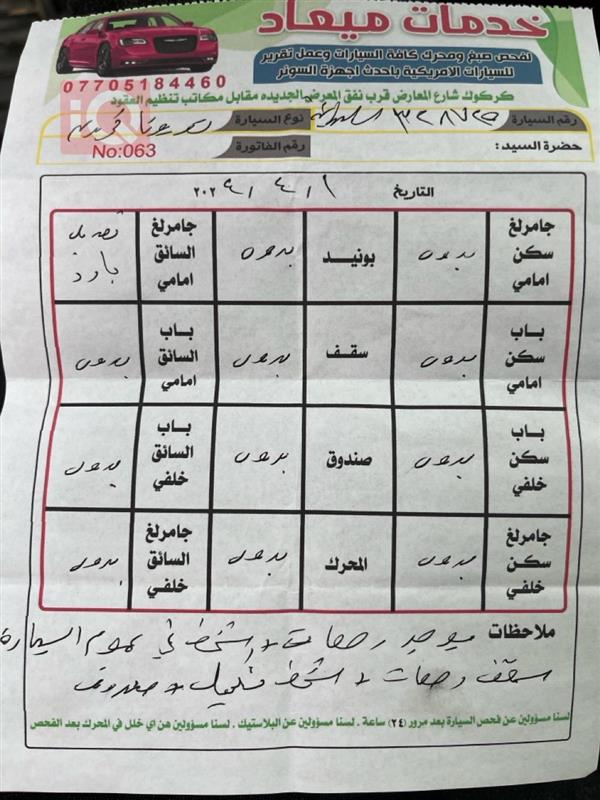 خدمات ميعاد
لفحص صبغ ومحرك كافة السيارات وعمل تقرير
للسيارات الامريكية باحدث اجهزة السونر
07705184460
كركوك شارع المعارض قرب نفق المعرض الجديده مقابل مكاتب تنظيم العقود
رقم السيارة نوع السيارة
حضرة السيد : رقم الفاتورة No:063
التاريخ
جامرلغ سكن امامي بدون بونيد بدون جامرلغ السائق امامي تعديل بارد
باب سكن امامي بدون سقف بدون باب السائق امامي بدون
باب سكن خلفي بدون صندوق بدون باب السائق خلفي بدون
جامرلغ سكن خلفي بدون المحرك بدون جامرلغ السائق خلفي بدون
ملاحظات يوجد
لسنا مسؤولين عن فحص السيارة بعد مرور (٢٤) ساعة . لسنا مسؤولين عن البلاستيك . لسنا مسؤولين عن اي خلل في المحرك بعد الفحص